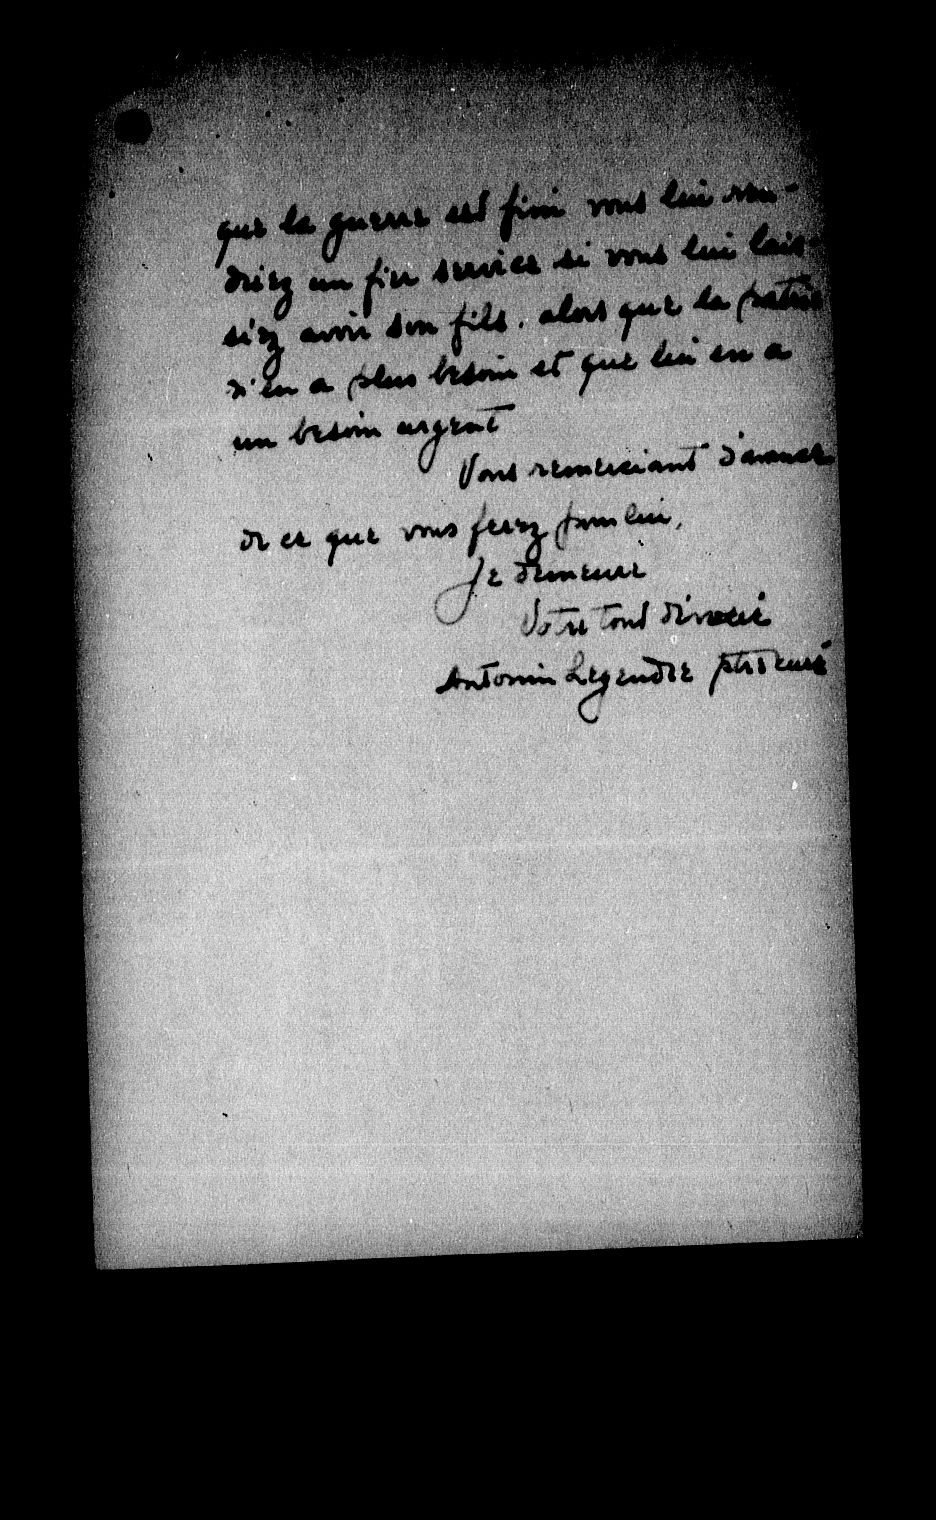 que la guerre est fini vous lui ren-
driez un fier service si vous lui lais-
siez avoir son fils. alors que la patrie
n'en a plus besoin et que lui en a
un besoin urgent
Vous remerciant d'avance
de ce que vous ferez pour lui,
Je demeure
Votre tout dévoué
Antonin Legendre ptre curé